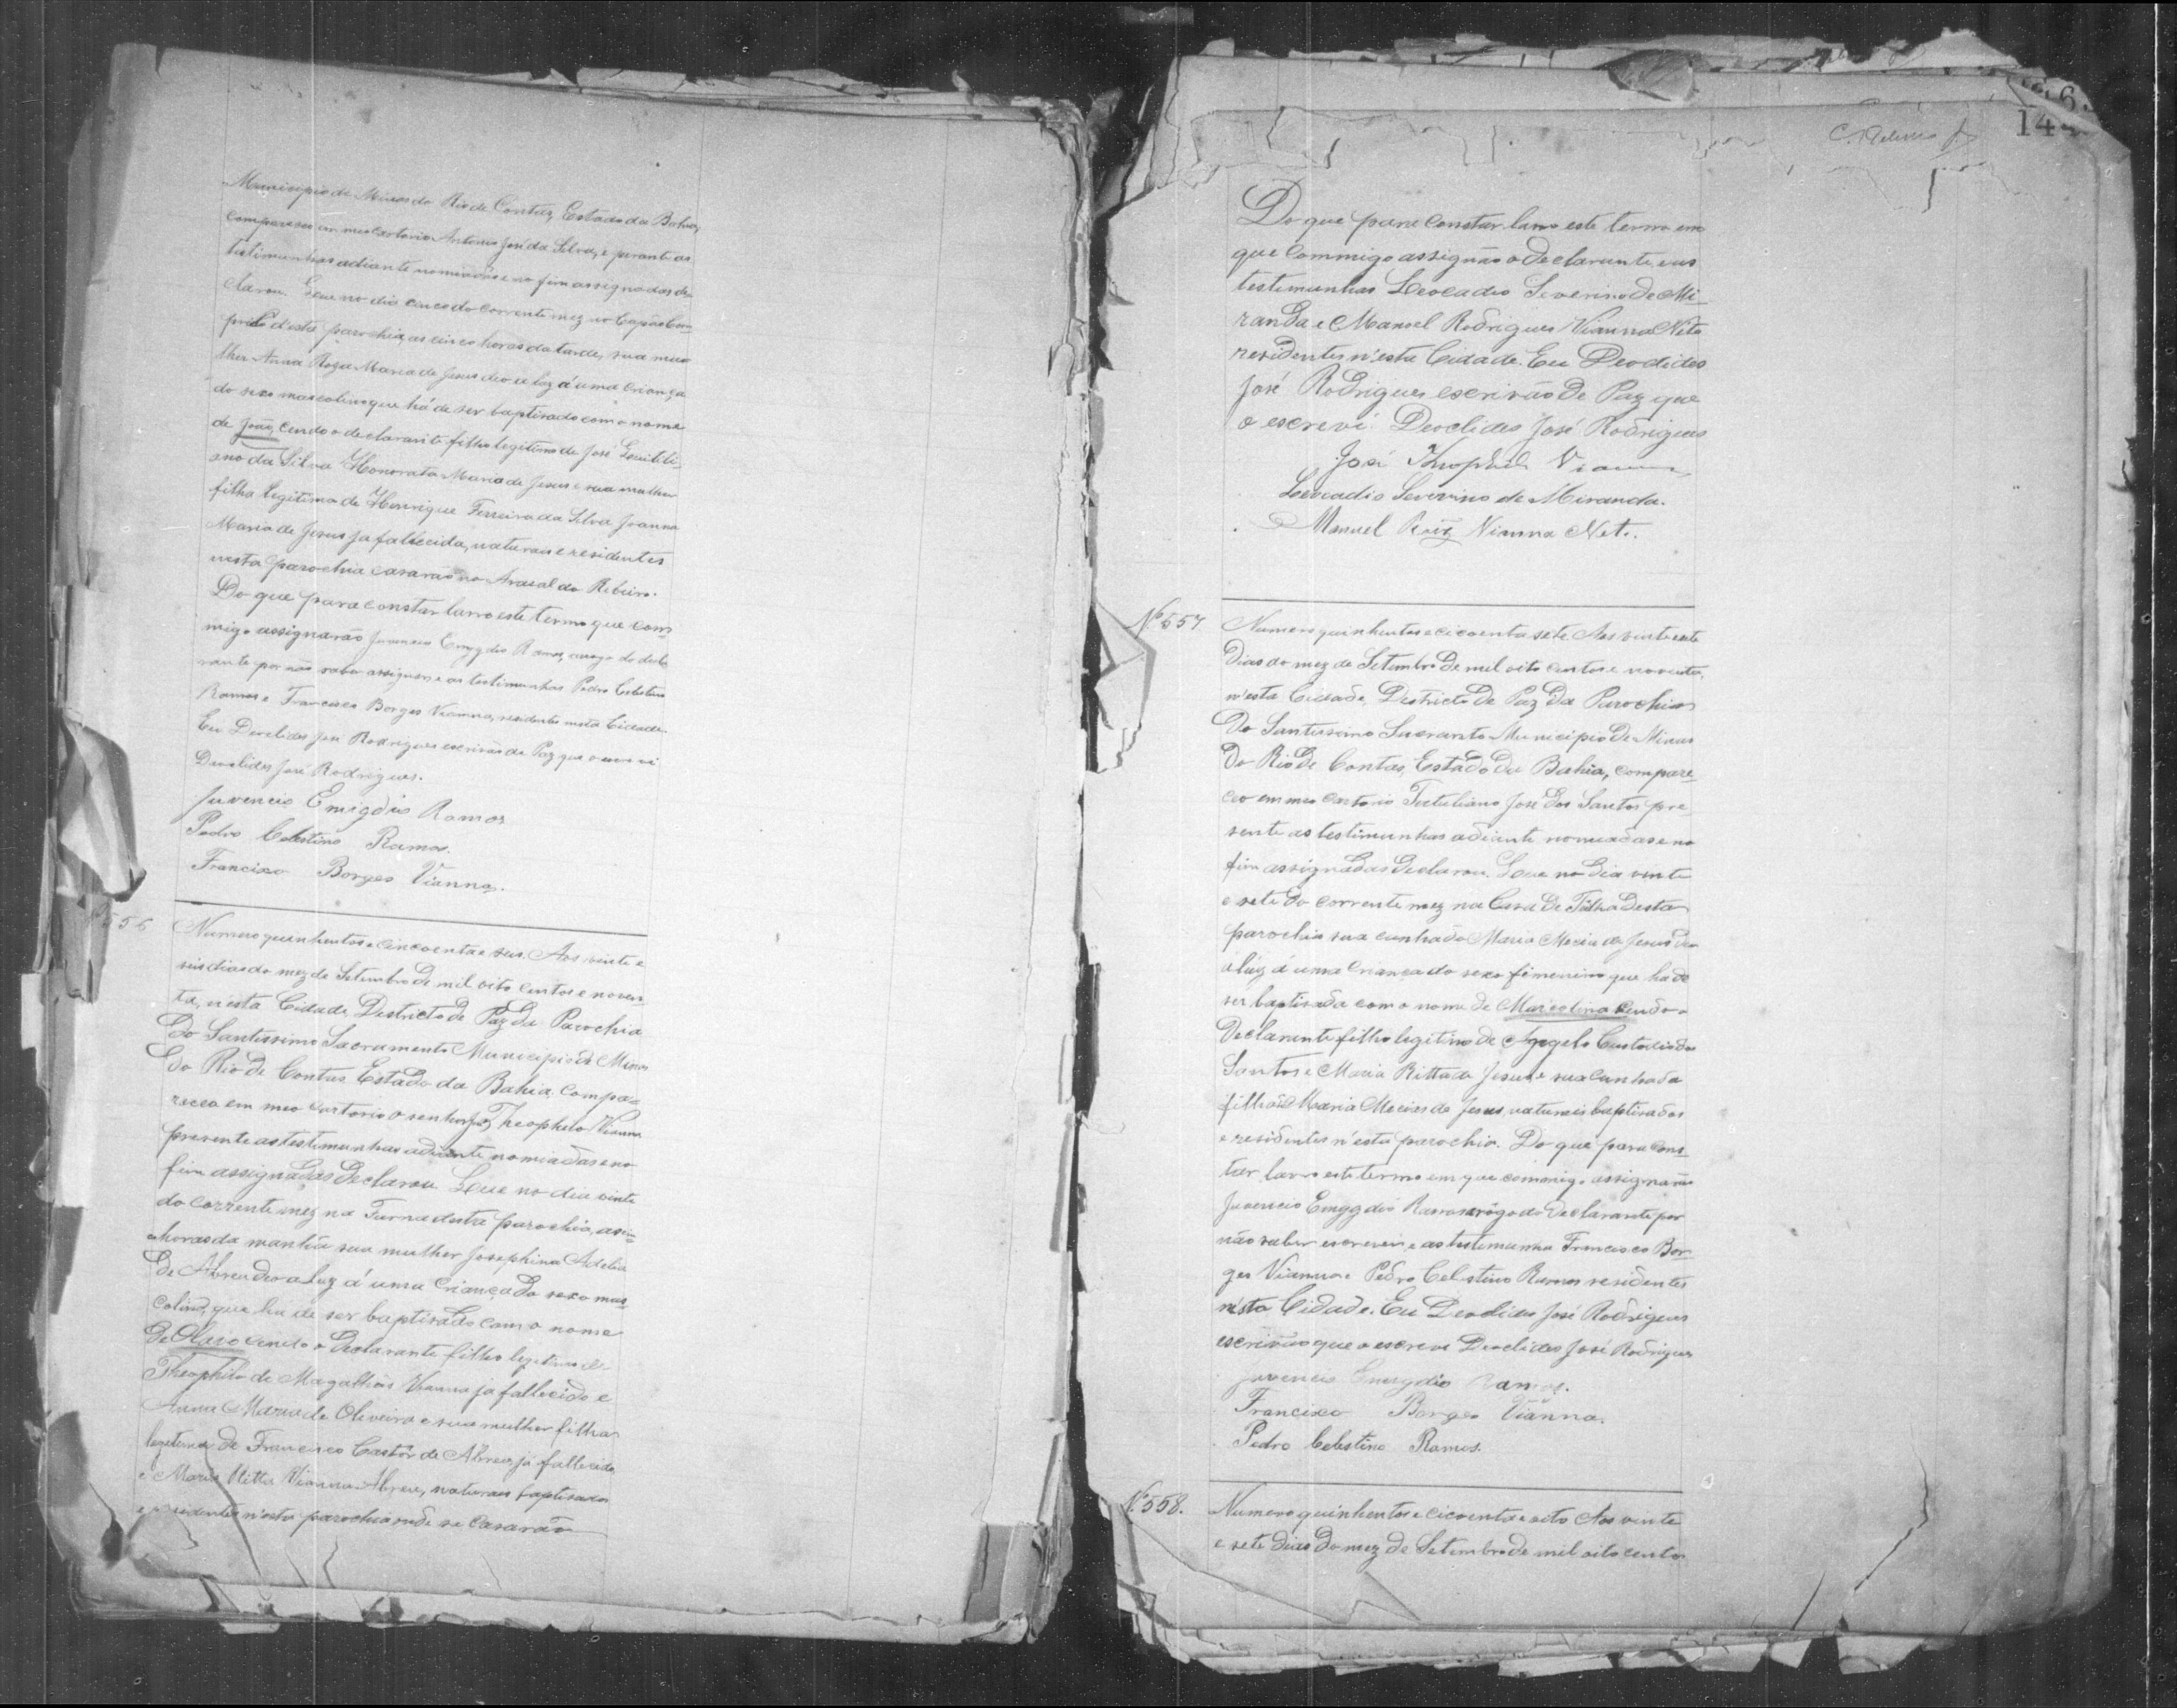 Municipio de Minas do Rio de Contas, Estado da Bahia,
compareceu em meu Cartorio Antonio José da Silva, e perante as
testimunhas adiante nomeadas e no fim assignadas de-
clarou. Que no dia cinco do corrente mez no Capão Com-
prido d'esta parochia, as cinco horas da tarde, sua mu-
lher Anna Roza Maria de Jesus deo a luz á uma criança
do sexo mascolino que há de ser baptisado com o nome
de João, cendo o declarante filho legitimo de José
da Silva Honorata Maria de Jesus e sua mulher
filha legitima de Henrique Ferreira da Silva Joanna
Maria de Jesus ja fallecida, naturais e residentes
nesta parochia casarão no Arraial do Ribeiro.
Do que para constar lavro este termo que com-
migo assignarão Juvencio Emygdio Ramos, arrogo do decla-
rante por não saber assignar, e as testimunhas Pedro Celestino
Ramos e Francisco Borges Vianna, residentes nesta Cidade.
Eu Deoclides José Rodrigues escrivão de Paz que o escrevi
Deoclides José Rodrigues.
Juvencio Emigdio Ramos
Pedro Celestino Ramos.
Francisco Borges Vianna.
556
Numero quinhentos e cincoenta e seis. Aos vinte e
seis dias do mez de Setembro de mil oito centos e noven-
ta, n'esta Cidade, Destricto de Paz da Parochia
do Santissimo Sacramento Municipio de Minas
do Rio de Contas Estado da Bahia, compa-
receo em meo cartorio o senhor José Theophelo Vianna
presente as testimunhas adiante nomiadas e no
fim assignadas declarou Que no dia vinte
do corrente mez na Furna desta parochia, as
horas da manhã sua mulher Josephina Adelia
de Abreu deo a luz á uma criança do sexo mas-
colino, que ha de ser baptisado com o nome
de Olavo cendo o declarante filho legitimo de
Theophilo de Magalhães Vianna ja fallecido e
Anna Maria de Oliveira e sua mulher filha
legetima de Francisco Castôr de Abreu, já fallecido
e Maria Ritta Vianna Abreu, naturais baptisados
e residentes n'esta parochia onde se casarão
14
Do que para constar lavro este termo em
que commigo assignão o declarante, e as
testemunhas Leocadio Severino de Mi-
randa e Manoel Rodrigues Vianna Neto
residentes n'esta Cidade. Eu Deoclides
José Rodrigues escrivão de Paz que
o escrevi. Deoclides José Rodrigues
José Theophilo Vianna
Leocadio Severino de Miranda.
Manuel Roiz Vianna Neto.
Nº 557
Numero quinhentos e cicoenta sete Aos vinte sete
dias do mez de Setembro de mil oito centos e noventa,
n'esta Cidade, Destricto de Paz da Parochia
do Santissimo Sacranto Municipio de Minas
do Rio de Contas, Estado da Bahia, compare-
ceo em meo cartorio Tertuliano José dos Santos pre-
sente as testimunhas adiante nomeadas e no
fim assignadas declarou. Que no dia vinte
e sete do corrente mez na Casa de Tëlha desta
parochia sua cunhada Maria Mecia de Jesus deo
a lúz á uma criança do sexo femenino que ha de
ser baptisada com o nome de Marcolina cendo o
declarante filho legitimo de Angelo Custodio dos
Santos e Maria Ritta de Jesus, e sua cunhada
filha de Maria Mecias de Jesus, naturais baptisados
e residentes n'esta parochia. Do que para cons-
tar lavro este termo em que commigo assignarão
Juvencio Emygdio Ramos arôgo do declarante por
não saber escrever, e as testimunha Francisco Bor-
ges Vianna e Pedro Celestino Ramos residentes
nésta Cidade. Eu Deoclides José Rodrigues
escrivão que o escrevi Deoclides José Rodrigues
Juvencio Emygdio Ramos.
Francisco Borges Vianna.
Pedro Celestino Ramos.
Nº 558.
Numero quinhentos e cicoenta e oito Aos vinte
e sete dias do mez de Setembro de mil oito centos